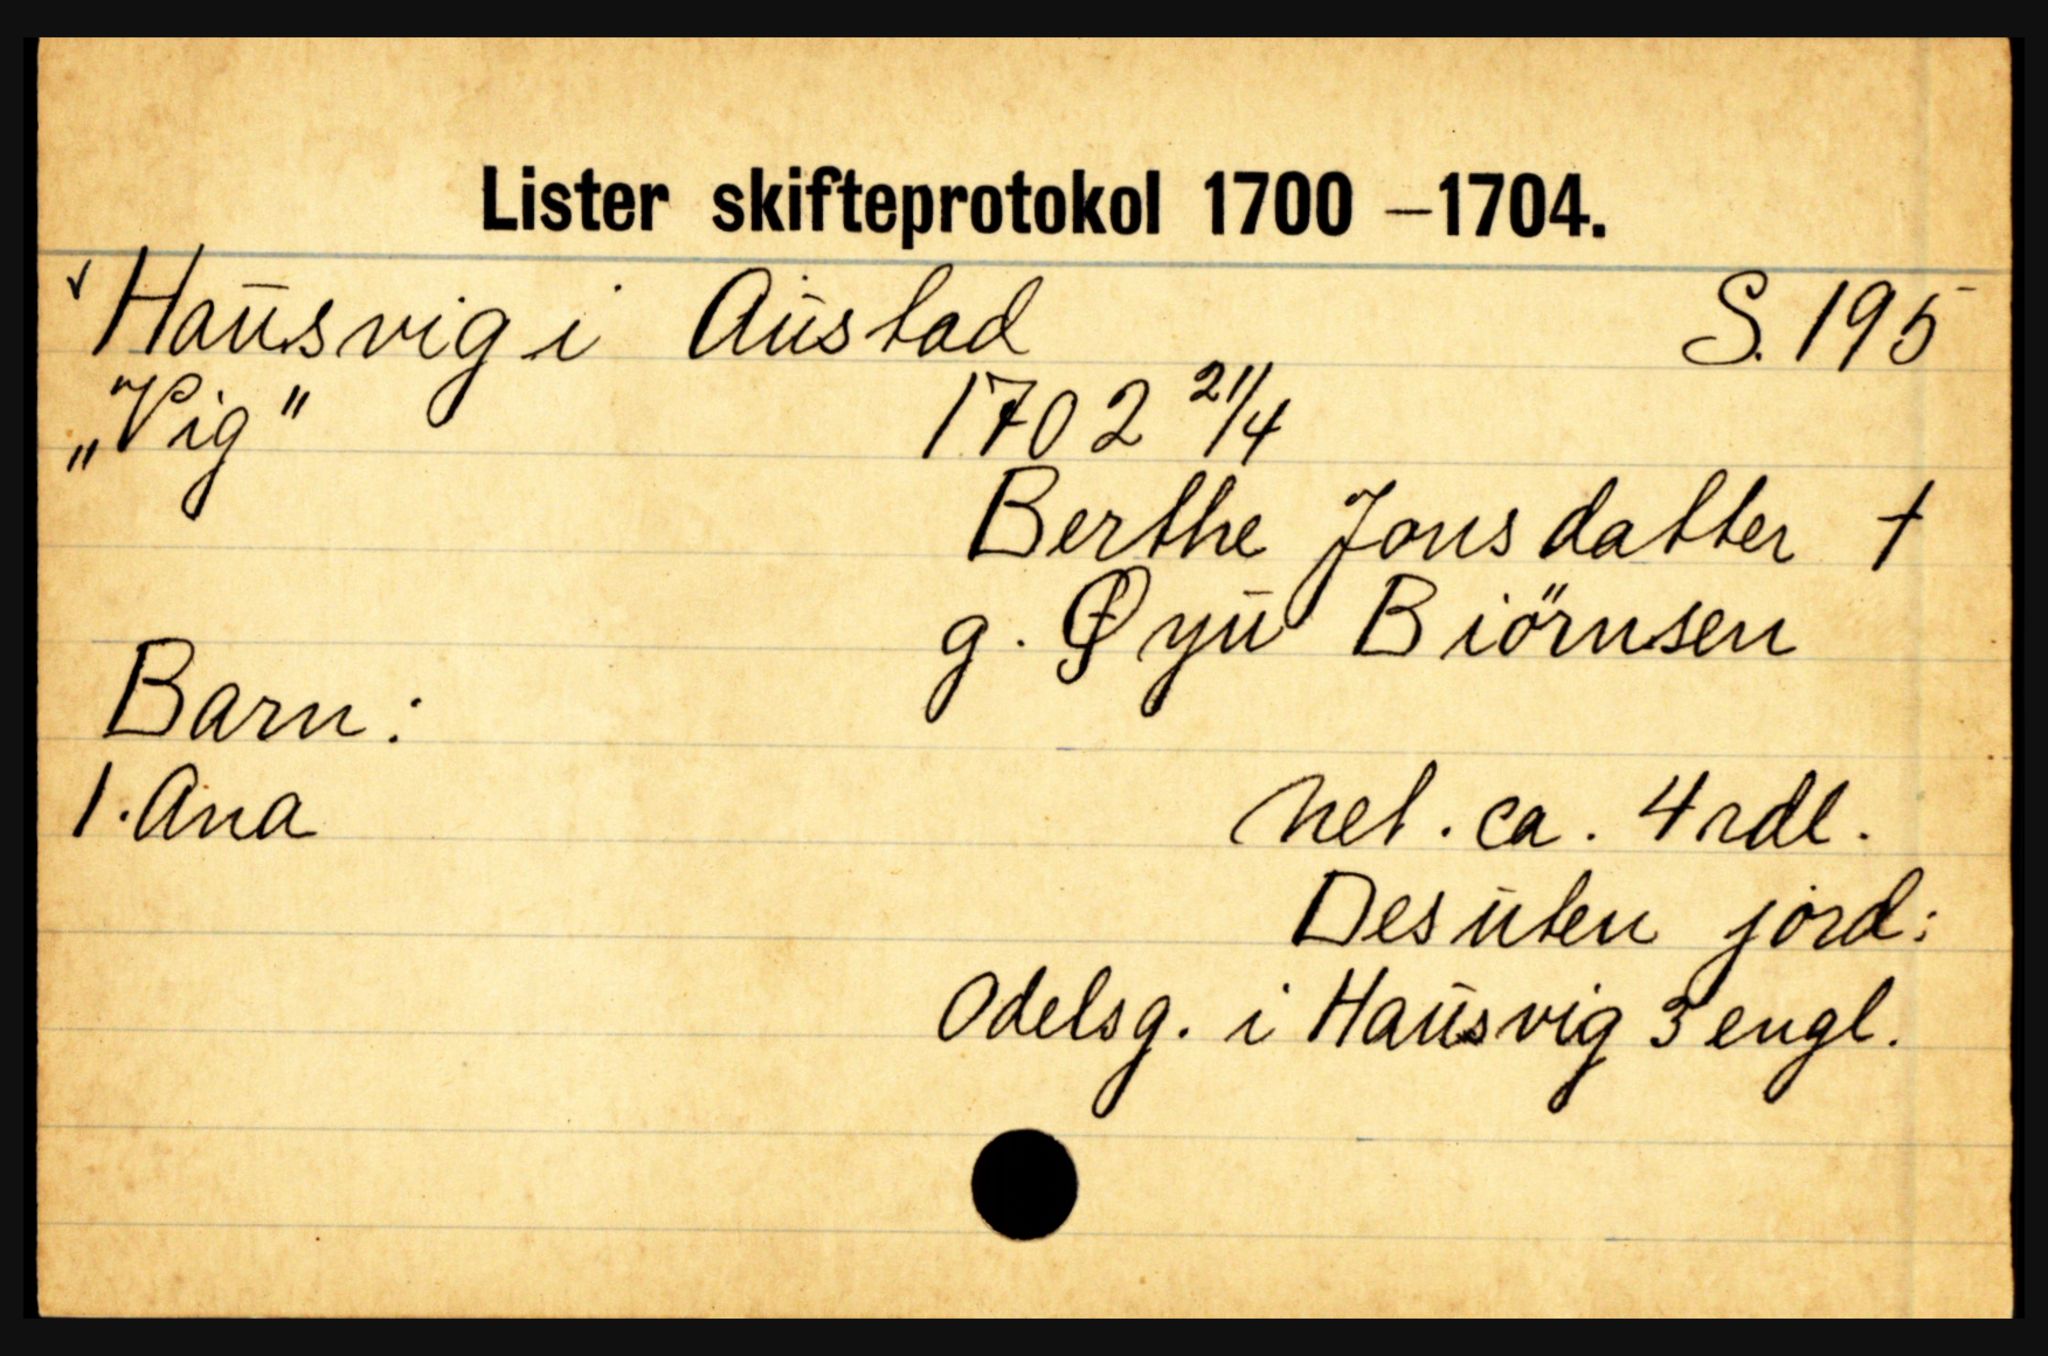 Lister skifteprotokol 1700 –1704.
√ Hausvig i Austad S. 195
„Vig" 1702 21/4
Berthe Jonsdatter †
g. Øyu Biörnsen
Barn:
1. Ana Net. ca. 4 rdl.
Desuten jord:
Odelsg. i Hausvig 3 engl.